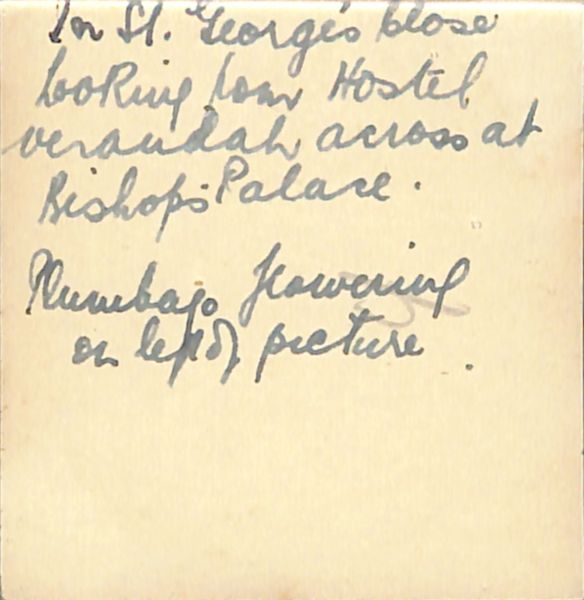 In St. George's Close
looking from Hostel
verandah across at
Bishop's Palace.
Plumbago flowering
on left of picture.